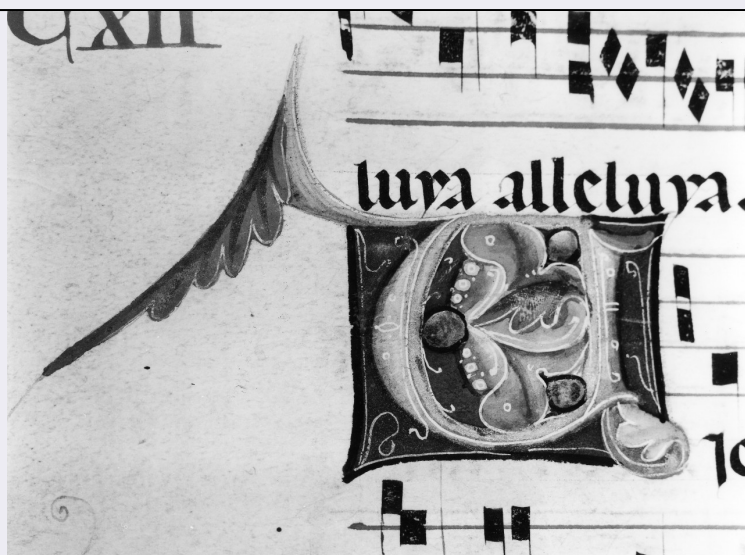 CXII
luya alleluya.